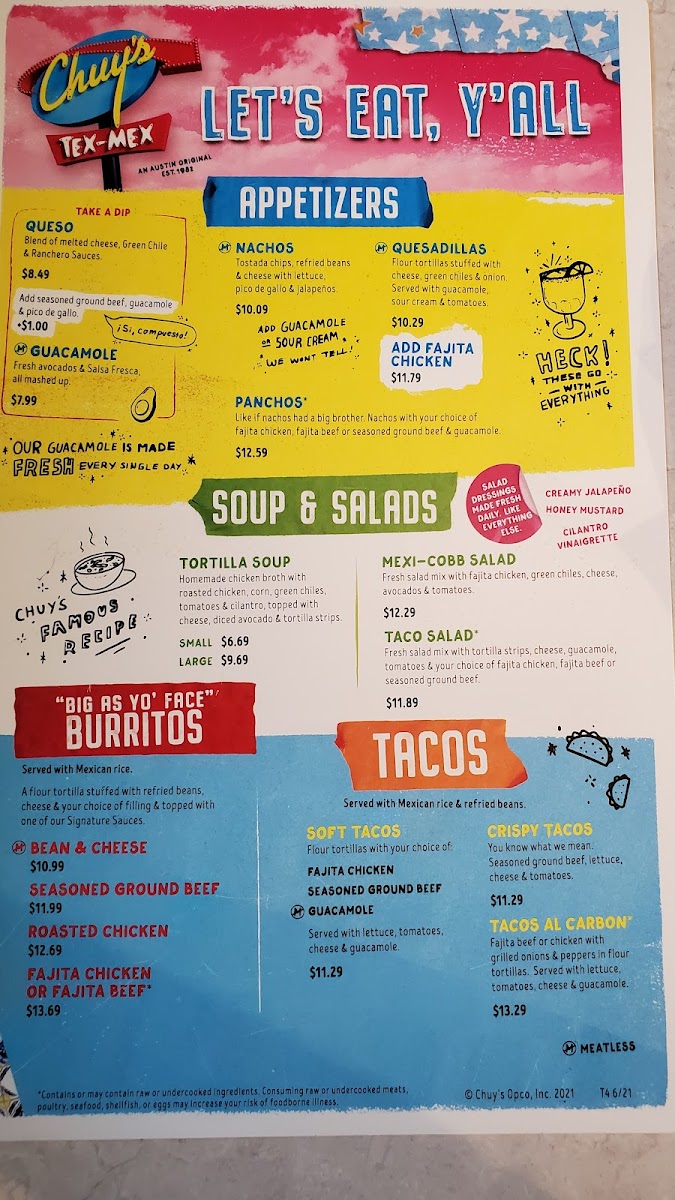 Chuy's
TEX-MEX
AN AUSTIN ORIGINAL
EST. 1982
LET'S EAT, Y'ALL
APPETIZERS
TAKE A DIP
QUESO
Blend of melted cheese, Green Chile
& Ranchero Sauces.
$8.49
Add seasoned ground beef, guacamole
& pico de gallo.
+$1.00
¡Si, compuesto!
M GUACAMOLE
Fresh avocados & Salsa Fresca,
all mashed up.
$7.99
OUR GUACAMOLE IS MADE
FRESH EVERY SINGLE DAY
M NACHOS
Tostada chips, refried beans
& cheese with lettuce,
pico de gallo & jalapeños.
$10.09
ADD GUACAMOLE
OR SOUR CREAM
WE WON'T TELL!
M QUESADILLAS
Flour tortillas stuffed with
cheese, green chiles & onion.
Served with guacamole,
sour cream & tomatoes.
$10.29
ADD FAJITA
CHICKEN
$11.79
HECK!
THESE GO
WITH
EVERYTHING
PANCHOS*
Like if nachos had a big brother. Nachos with your choice of
fajita chicken, fajita beef or seasoned ground beef & guacamole.
$12.59
SOUP & SALADS
SALAD
DRESSINGS
MADE FRESH
DAILY. LIKE
EVERYTHING
ELSE.
CREAMY JALAPEÑO
HONEY MUSTARD
CILANTRO
VINAIGRETTE
CHUY'S
FAMOUS
RECIPE
TORTILLA SOUP
Homemade chicken broth with
roasted chicken, corn, green chiles,
tomatoes & cilantro, topped with
cheese, diced avocado & tortilla strips.
SMALL $6.69
LARGE $9.69
MEXI-COBB SALAD
Fresh salad mix with fajita chicken, green chiles, cheese,
avocados & tomatoes.
$12.29
TACO SALAD*
Fresh salad mix with tortilla strips, cheese, guacamole,
tomatoes & your choice of fajita chicken, fajita beef or
seasoned ground beef.
$11.89
"BIG AS YO' FACE"
BURRITOS
Served with Mexican rice.
A flour tortilla stuffed with refried beans,
cheese & your choice of filling & topped with
one of our Signature Sauces.
M BEAN & CHEESE
$10.99
SEASONED GROUND BEEF
$11.99
ROASTED CHICKEN
$12.69
FAJITA CHICKEN
OR FAJITA BEEF*
$13.69
TACOS
Served with Mexican rice & refried beans.
SOFT TACOS
Flour tortillas with your choice of:
FAJITA CHICKEN
SEASONED GROUND BEEF
M GUACAMOLE
Served with lettuce, tomatoes,
cheese & guacamole.
$11.29
CRISPY TACOS
You know what we mean.
Seasoned ground beef, lettuce,
cheese & tomatoes.
$11.29
TACOS AL CARBON*
Fajita beef or chicken with
grilled onions & peppers in flour
tortillas. Served with lettuce,
tomatoes, cheese & guacamole.
$13.29
M MEATLESS
*Contains or may contain raw or undercooked ingredients. Consuming raw or undercooked meats,
poultry, seafood, shellfish, or eggs may increase your risk of foodborne illness.
© Chuy's Opco, Inc. 2021 T4 6/21